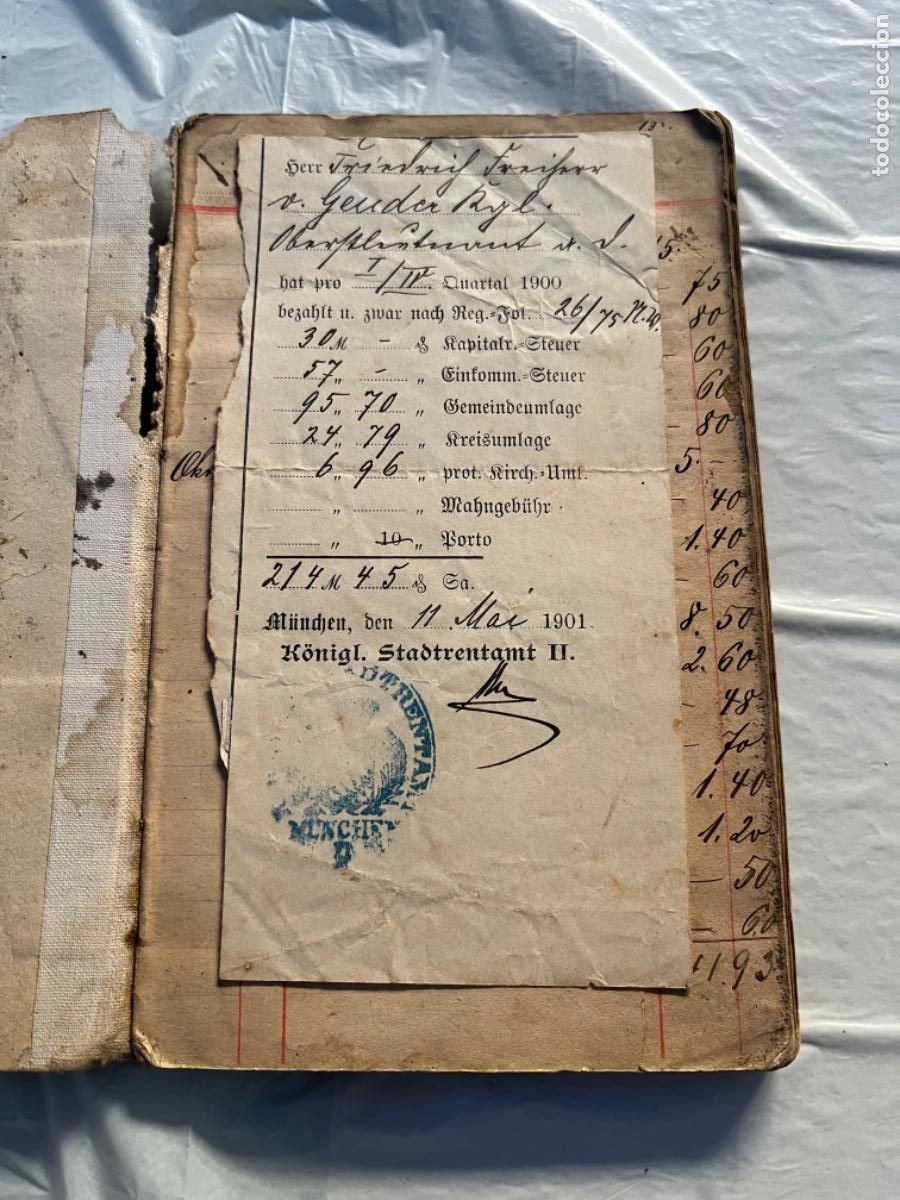 Herr Friedrich Freiherr
v. Geuder Kgl.
Oberstleutnant a. D.
hat pro I/IV. Quartal 1900
bezahlt u. zwar nach Reg.-Fol. 26/75
30 M – ₰ Kapitalr.-Steuer
57 „ – „ Einkomm.-Steuer
95 „ 70 „ Gemeindeumlage
24 „ 79 „ Kreisumlage
6 „ 96 „ prot. Kirch.-Uml.
„ „ Mahngebühr
„ 10 „ Porto
214 M 45 ₰ Sa.
München, den 11 Mai 1901.
Königl. Stadtrentamt II.
STADTRENTAMT
MÜNCHEN
5.
– 75
– 80
– 60
60
– 80
5. –
– 40
1. 40
– 60
8. 50
2. 60
– 48
– 70
1. 40
1. 20
– 50
– 60
1. 93
todocoleccion